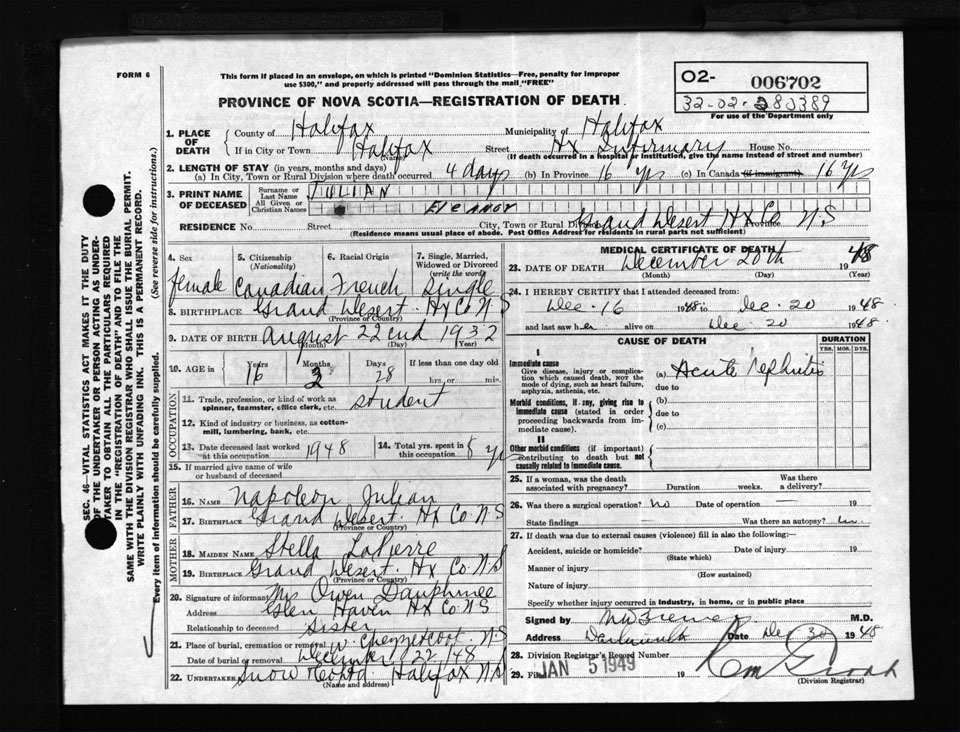 FORM 6
This form if placed in an envelope, on which is printed "Dominion Statistics—Free, penalty for improper
use $300," and properly addressed will pass through the mail "FREE"
PROVINCE OF NOVA SCOTIA—REGISTRATION OF DEATH
02- 006702
32-02-280389
For use of the Department only
1. PLACE OF DEATH
County of Halifax Municipality of Halifax
If in City or Town Halifax Street Hx Infirmary House No.
(Name) (If death occurred in a hospital or institution, give the name instead of street and number)
2. LENGTH OF STAY (in years, months and days)
(a) In City, Town or Rural Division where death occurred 4 days (b) In Province 16 yrs (c) In Canada (if immigrant) 16 yrs
3. PRINT NAME OF DECEASED
Surname or Last Name JULIAN
All Given or Christian Names Eleanor
RESIDENCE No. Street City, Town or Rural Division Grand Desert Hx Co Province N.S
(Residence means usual place of abode. Post Office Address for residents in rural parts not sufficient)
4. Sex female
5. Citizenship (Nationality) Canadian
6. Racial Origin French
7. Single, Married, Widowed or Divorced (write the word) Single
8. BIRTHPLACE Grand Desert. Hx Co N S
(Province or Country)
9. DATE OF BIRTH August 22nd 1932
(Month) (Day) (Year)
10. AGE in Years Months Days If less than one day old
16 3 28 hrs. or min.
OCCUPATION
11. Trade, profession, or kind of work as spinner, teamster, office clerk, etc. student
12. Kind of industry or business, as cotton-mill, lumbering, bank, etc.
13. Date deceased last worked at this occupation 1948
14. Total yrs. spent in this occupation 8 yrs
15. If married give name of wife or husband of deceased
FATHER
16. NAME Napoleon Julian
17. BIRTHPLACE Grand Desert. Hx Co N S
(Province or Country)
MOTHER
18. MAIDEN NAME Stella LaPierre
19. BIRTHPLACE Grand Desert. Hx Co. N S
(Province or Country)
20. Signature of informant Mrs Owen Dauphinee
Address Glen Haven Hx Co N S
Relationship to deceased Sister
21. Place of burial, cremation or removal W. Chezzetcook. N S
Date of burial or removal December 22/48
22. UNDERTAKER Snow & Co Ltd. Halifax N S
(Name and address)
MEDICAL CERTIFICATE OF DEATH
23. DATE OF DEATH December 20th 1948
(Month) (Day) (Year)
24. I HEREBY CERTIFY that I attended deceased from:
Dec - 16 1948 to Dec - 20 1948
and last saw her alive on Dec 20 1948.
CAUSE OF DEATH
DURATION
YRS. MOS. DYS.
I
Immediate cause
Give disease, injury or complication which caused death, NOT the mode of dying, such as heart failure, asphyxia, asthenia, etc.
(a) Acute Nephritis
due to
Morbid conditions, if any, giving rise to immediate cause (stated in order proceeding backwards from immediate cause).
(b)
due to
(c)
II
Other morbid conditions (if important) contributing to death but not causally related to immediate cause.
25. If a woman, was the death associated with pregnancy? Duration weeks. Was there a delivery?
26. Was there a surgical operation? No Date of operation 19
State findings Was there an autopsy?
27. If death was due to external causes (violence) fill in also the following:—
Accident, suicide or homicide? Date of injury 19
(State which)
Manner of injury
(How sustained)
Nature of injury
Specify whether injury occurred in industry, in home, or in public place
Signed by M.D.
Address Dartmouth Date Dec 20 1948
28. Division Registrar's Record Number
29. Filed JAN 5 1949 19
(Division Registrar)
SEC. 46—VITAL STATISTICS ACT MAKES IT THE DUTY
OF THE UNDERTAKER OR PERSON ACTING AS UNDER-
TAKER TO OBTAIN ALL THE PARTICULARS REQUIRED
IN THE "REGISTRATION OF DEATH" AND TO FILE THE
SAME WITH THE DIVISION REGISTRAR WHO SHALL ISSUE THE BURIAL PERMIT.
WRITE PLAINLY WITH UNFADING INK. THIS IS A PERMANENT RECORD.
Every item of information should be carefully supplied. (See reverse side for instructions.)